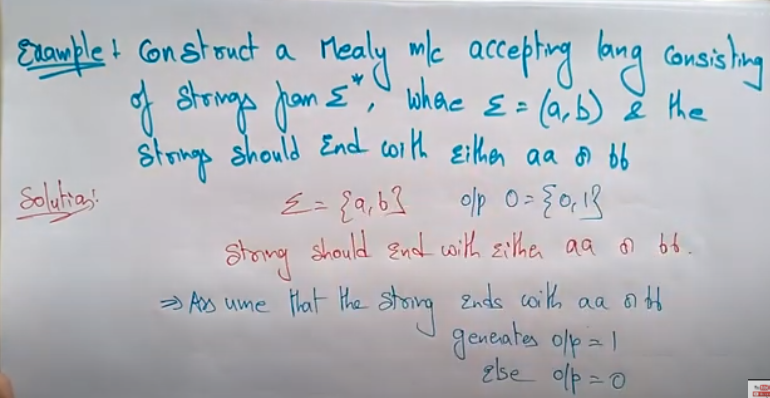 Example: Construct a Mealy m/c accepting lang consisting
of strings from Σ*, where Σ = (a, b) & the
strings should End with Either aa or bb
Solution:
Σ = {a, b} o/p O = {0, 1}
String should End with Either aa or bb.
⇒ Assume that the string Ends with aa or bb
generates o/p = 1
Else o/p = 0